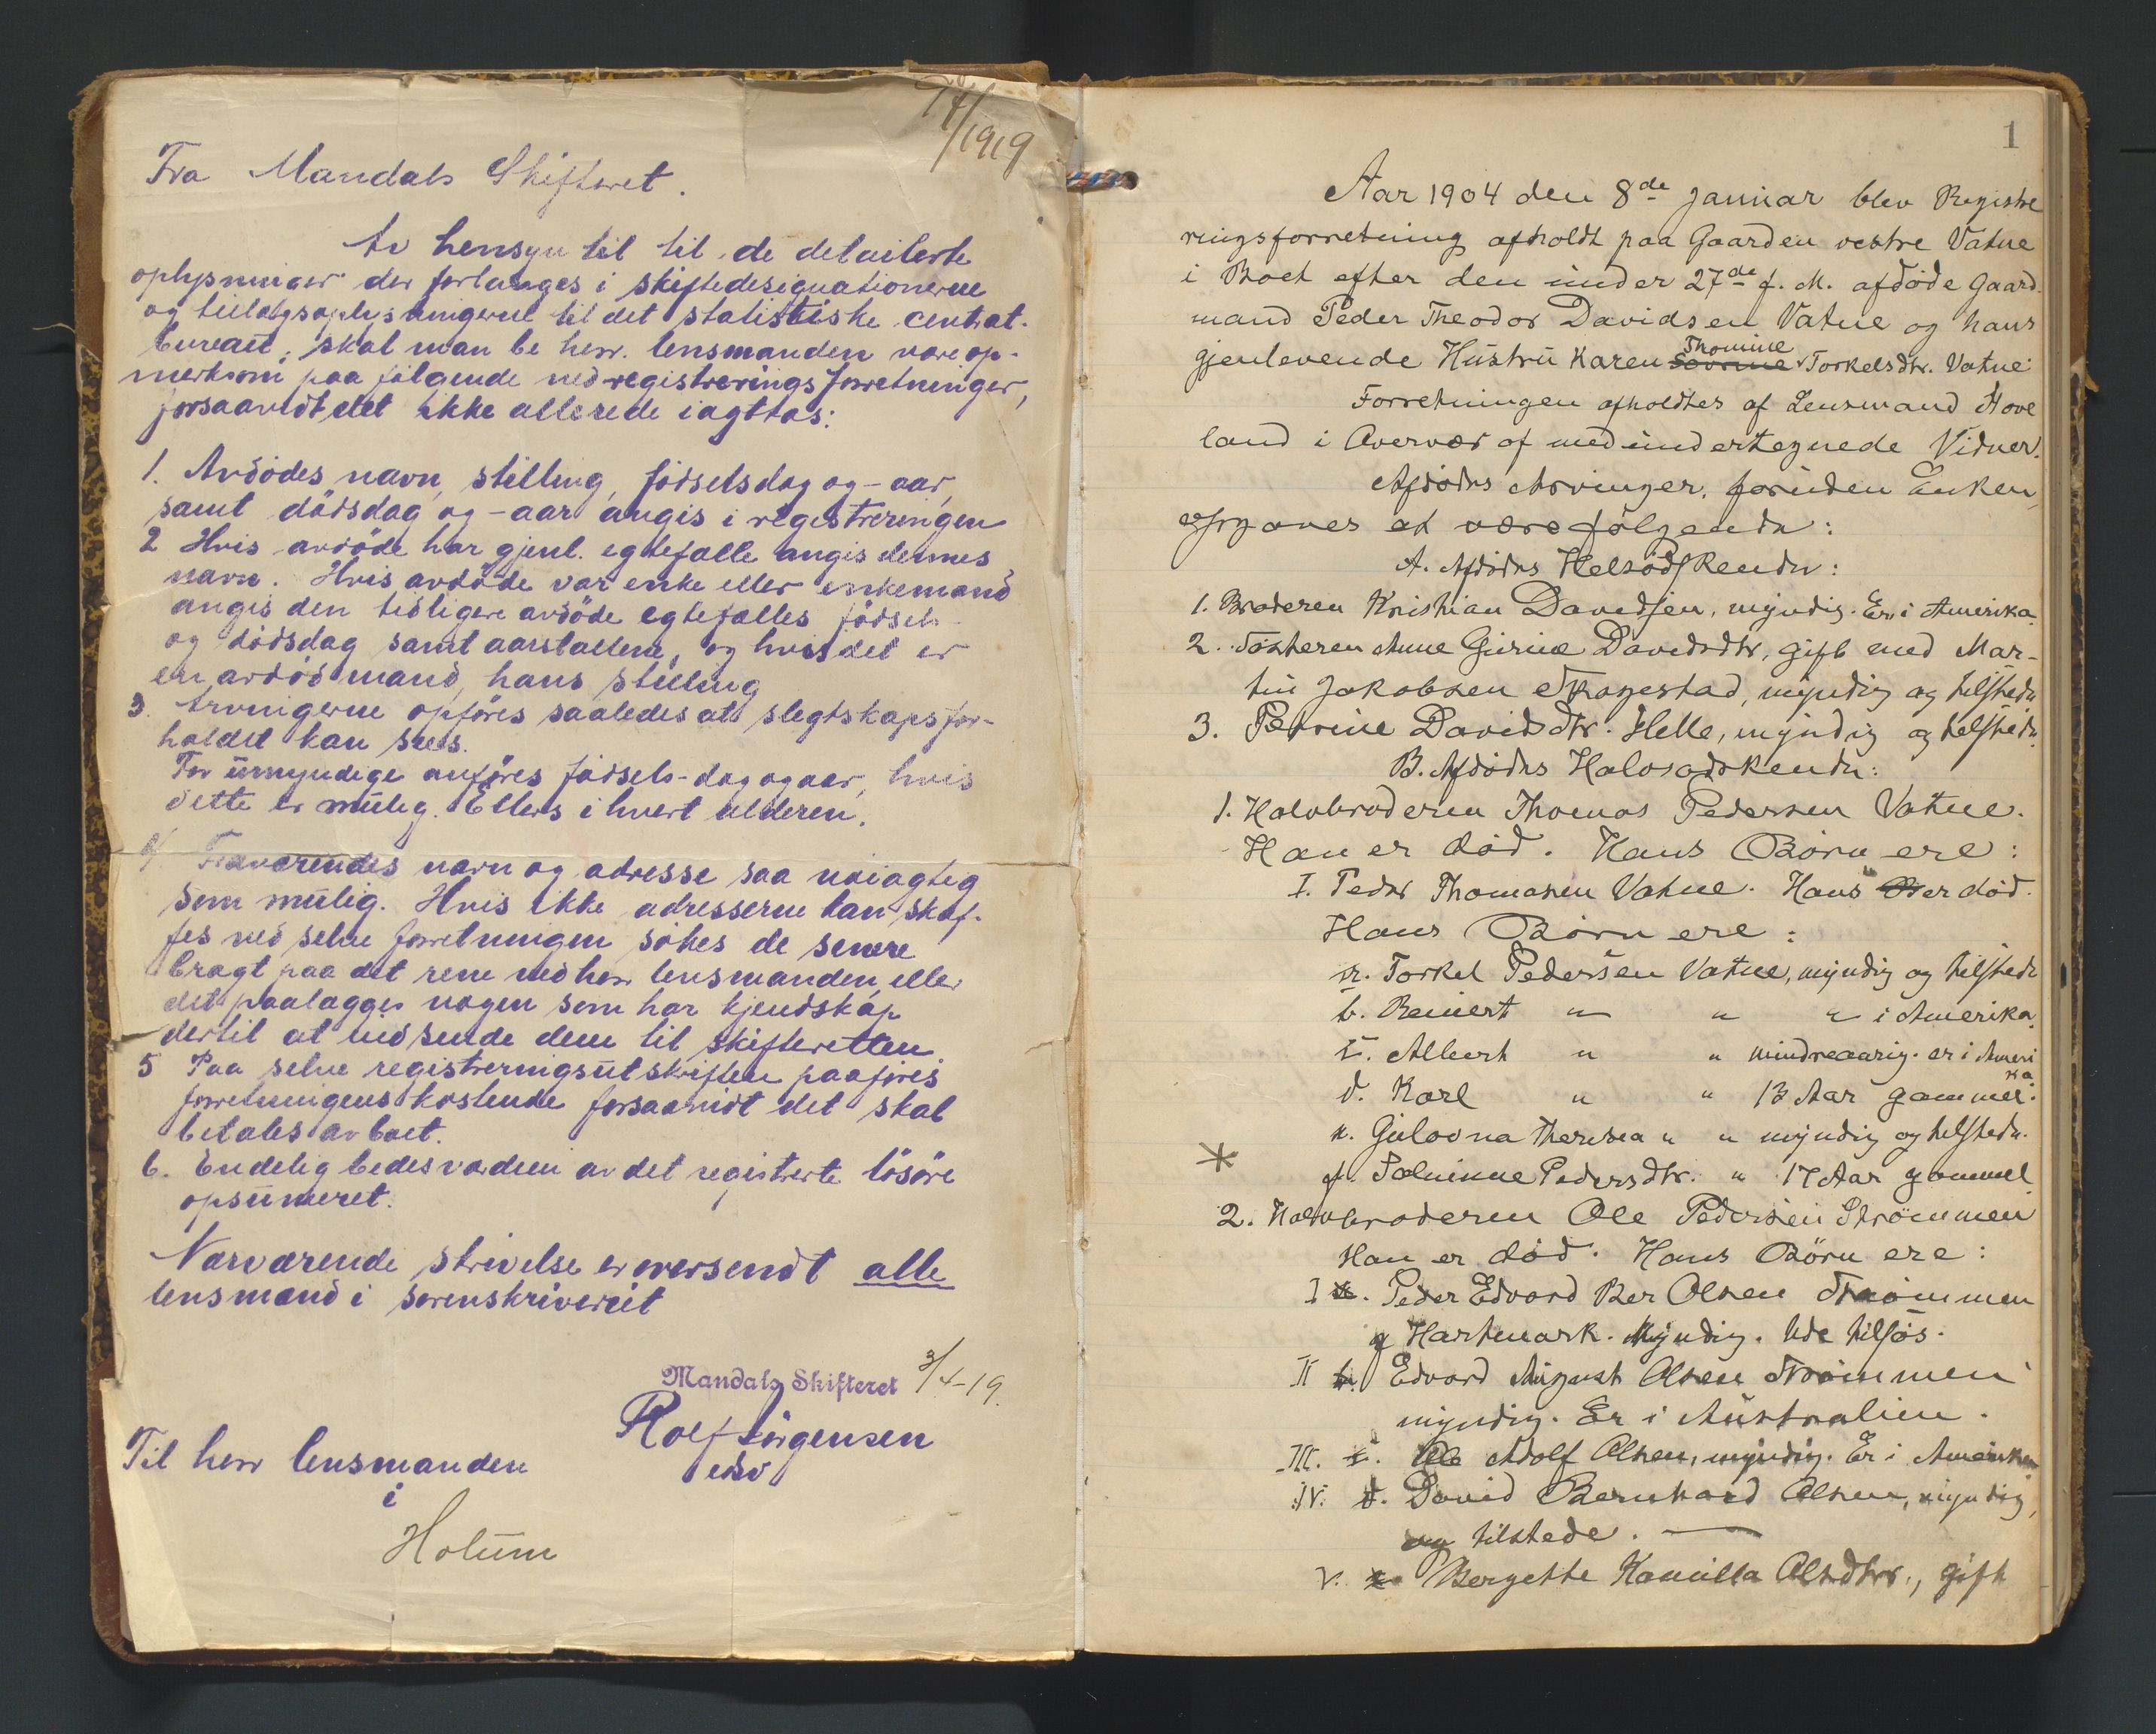 7/4/1919
Fra Mandals Skifteret.
Av hensyn til til de detailerte
oplysninger der forlanges i skiftedesignationerne
og tillægsoplysningerne til det statistiske central-
bureau, skal man be herr. lensmanden være op-
merksom paa følgende ved registreringsforretninger,
forsaavidt det ikke allerede iagttas:
1. Avdödes navn, stilling, födselsdag og -aar,
samt dödsdag og -aar angis i registreringen
2 Hvis avdöde har gjenl. egtefælle angis dennes
navn. Hvis avdöde var enke eller enkemand
angis den tidligere avdöde egtefælles födsels-
og dödsdag samt aarstallene, og hvis det er
en avdöd mand, hans stilling
3. Arvingerne opföres saaledes at slegtskapsfor-
holdet kan sees.
For umyndige anföres födsels-dag og aar, hvis
dette er mulig. Ellers i hvert alderen.
4 Fraværendes navn og adresse saa nöiagtig
som mulig. Hvis ikke adresserne kan skaf-
fes ved selve forretningen sökes de senere
bragt paa det rene ved herr lensmanden, eller
det paalægges nogen som har kjendskap
dertil at indsende dem til skifteretten.
5 Paa selve registreringsutskriften paaföres
forretningens kostende forsaavidt det skal
betales av boet.
6. Endelig bedes værdien av det registrerte lösöre
opsumeret.
Nærværende skrivelse er oversendt alle
lensmænd i sorenskriveriet
Mandals Skifteret 3/4-19.
Rolf Jörgensen
edsv
Til herr lensmanden
i
Holum
1
Aar 1904 den 8de Januar blev Registre
ringsforretning afholdt paa Gaarden vestre Vatne
i Boet efter den under 27de f. M. afdöde Gaard
mand Peder Theodor Davidsen Vatne og hans
gjenlevende Hustru Karen Thomine Torkelsdtr. Vatne
Forretningen afholdtes af Lensmand Hove
land i Overvær af medundertegnede Vidner.
Afdödes Arvinger, foruden Enken,
opgaves at være fölgende:
A. Afdödes Helsödskende:
1. Broderen Kristian Davidsen, myndig. Er i Amerika
2. Sösteren Anne Gurine Davidsdtr, gift med Mar-
tin Jakobsen Skagestad, myndig og tilstede
3. Petrine Davidsdtr. Helle, myndig og tilstede
B. Afdödes Halvsödskende:
1. Halvbroderen Thomas Pedersen Vatne.
Han er död. Hans Börn ere:
I. Peder Thomasen Vatne. Hans er död.
Hans Börn ere:
a. Torkel Pedersen Vatne, myndig og tilstede
b. Reinert " " " i Amerika
c. Albert " " mindreaarig. er i Ameri
ka
d. Karl " " 13 Aar gammel.
e. Gulovna Theresea " " myndig og tilstede.
* f. Salminne Pedersdtr. " 17 Aar gammel
2. Halvbroderen Ole Pedersen Strömmen
Han er död. Hans Börn ere:
I. Peder Edvard Ber Olsen Strömmen
Hartmark. Myndig. Ude tilsjös.
II Edvard August Olsen Strömmen
myndig. Er i Australien.
III. Adolf Olsen, myndig. Er i Amerika
IV. David Bernhard Olsen, myndig,
og tilstede.
V. Bergette Kamilla Olsdtr., gift